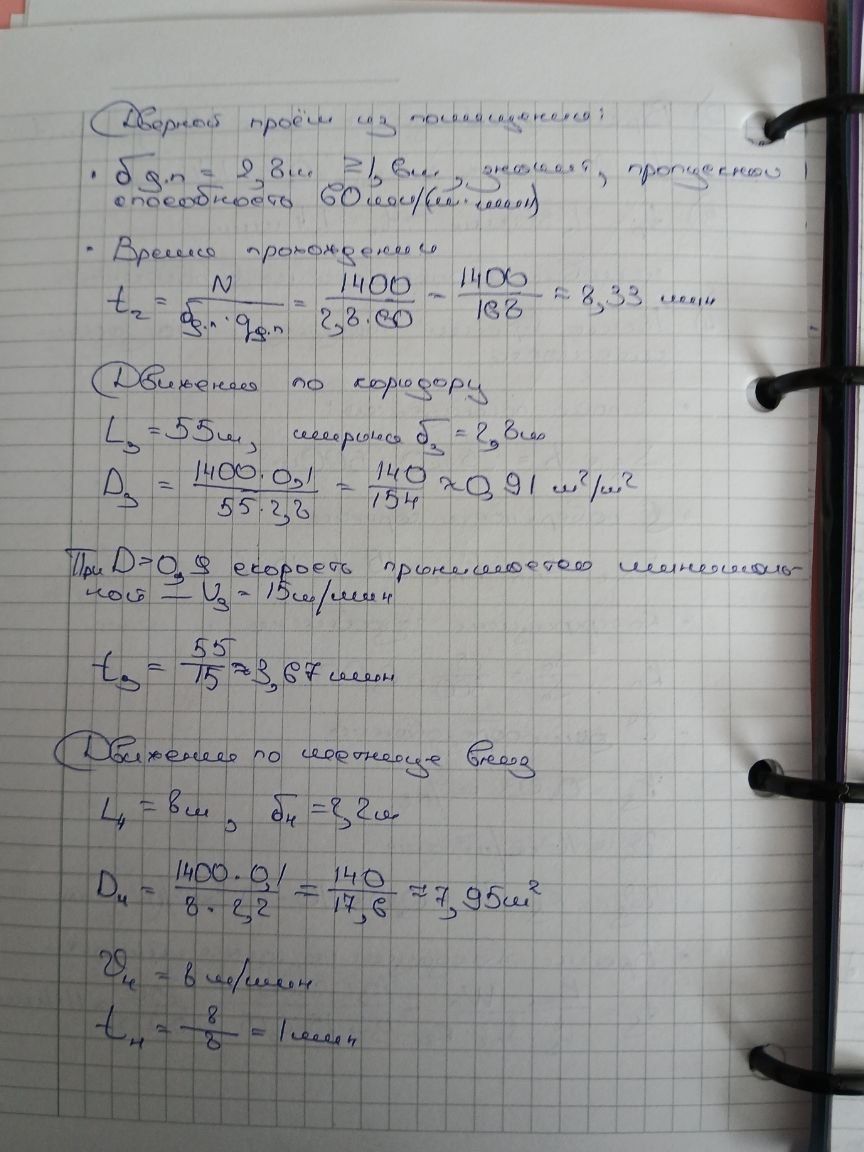 Дверной проём из помещения:
· δд.п = 2,8м ≥ 1,6м, значит, пропускной
способность 60 чел/(м·мин)
· Время прохождения
t₂ = N / (δд.п · qд.п) = 1400 / (2,8·60) = 1400 / 168 = 8,33 мин
Движения по коридору
L₃ = 55м, ширина δ₃ = 2,8м
D₃ = (1400·0,1) / (55·2,8) = 140 / 154 ≈ 0,91 м²/м²
При D>0,9 скорость принимается минималь-
ной — V₃ = 15м/мин
t₃ = 55 / 15 ≈ 3,67 мин
Движения по лестнице вниз
L₄ = 8м, δ₄ = 2,2м
D₄ = (1400·0,1) / (8·2,2) = 140 / 17,6 ≈ 7,95м²
V₄ = 8 м/мин
t₄ = 8 / 8 = 1 мин